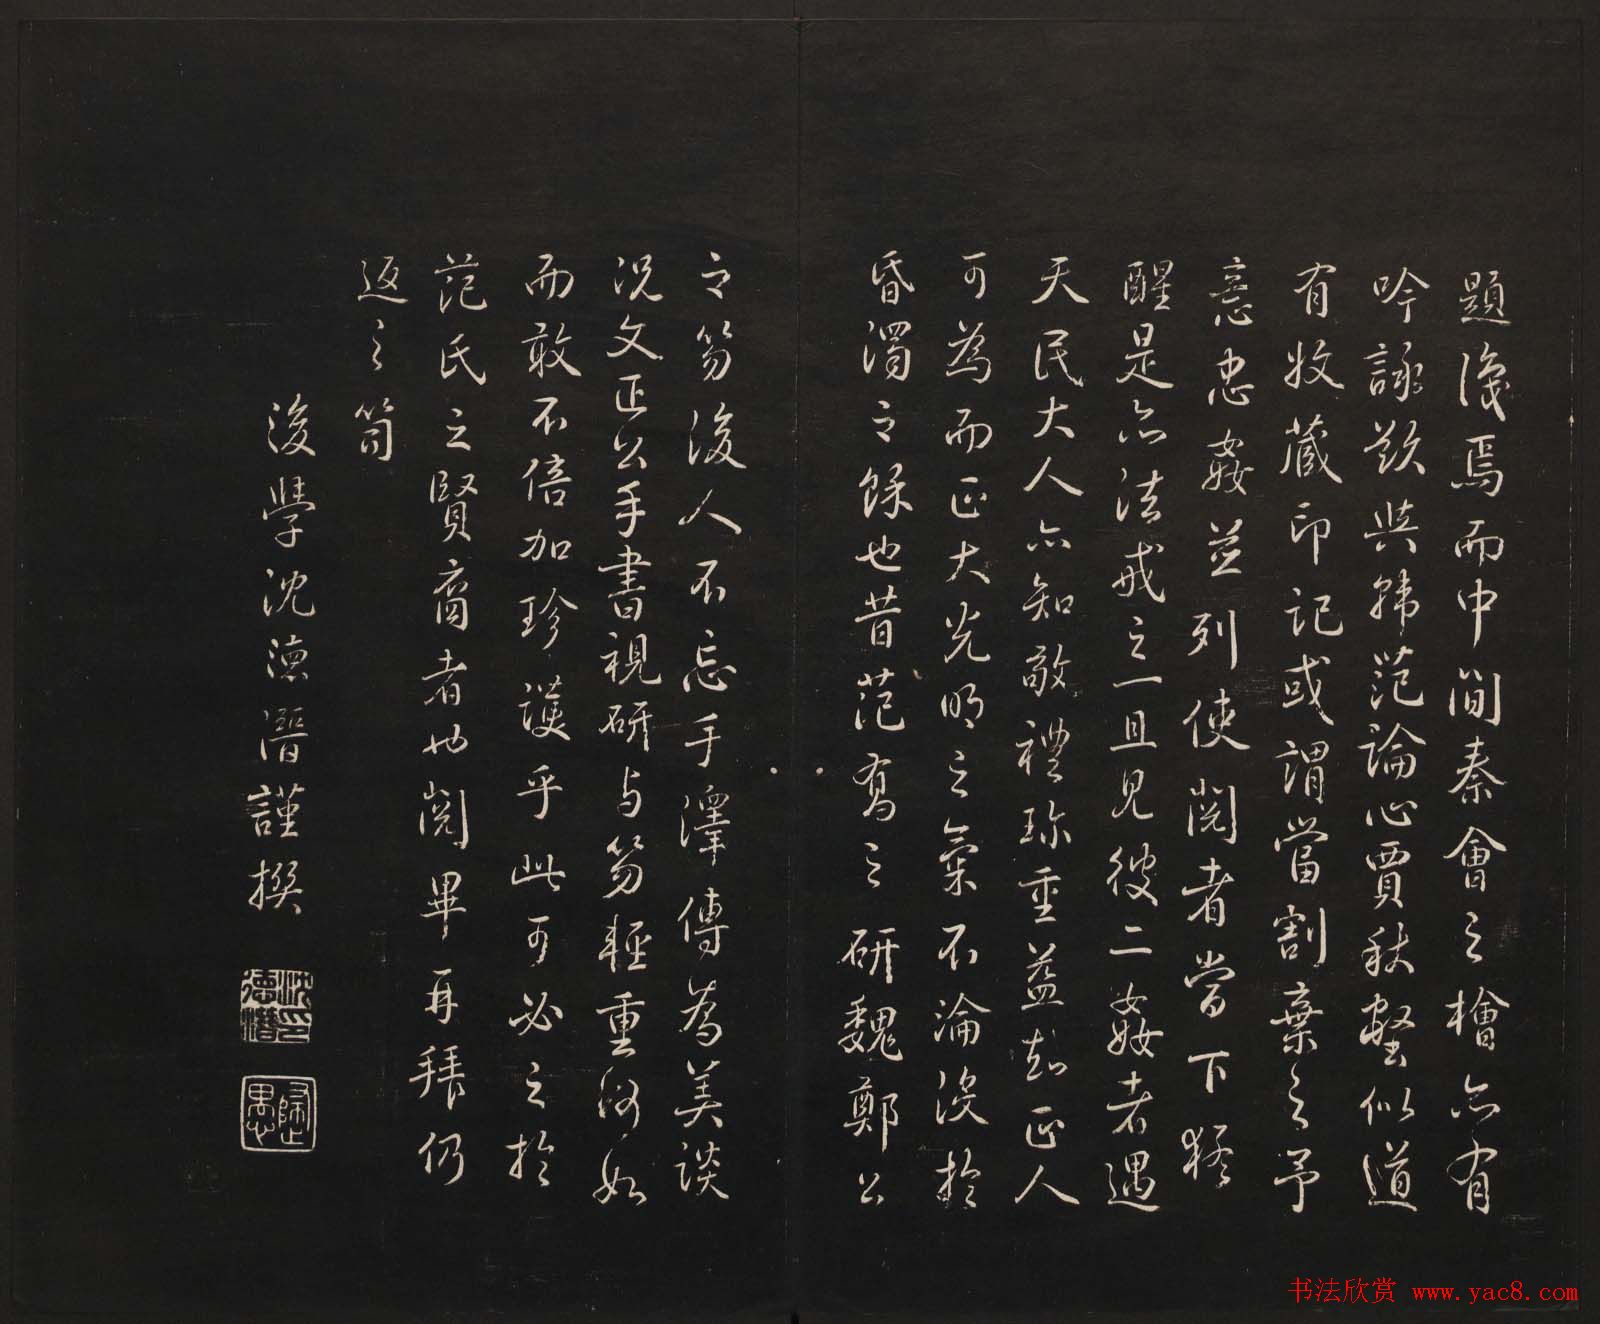 題後焉而中間秦會之檜亦有
吟詠歎與韓范論心賈秋壑似道
有收藏印記或謂當割棄之予
意忠姦並列使閱者當下猛
醒是亦法戒之一且見彼二姦者遇
天民大人亦知敬禮珍重益知正人
可為而正大光明之氣不淪没於
昏濁之餘也昔范喬之研魏鄭公
之笏後人不忘手澤傳為美談
況文正公手書視研与笏輕重何如
而敢不倍加珍護乎此可必之於
范氏之賢裔者也閱畢再拜仍
返之笥
後學沈德潛謹撰
沈德潛印
歸愚
书法欣赏 www.yac8.com